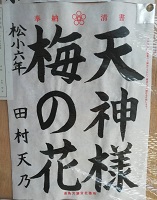 奉納 清書
天神様
梅の花
松小六年
田村天乃